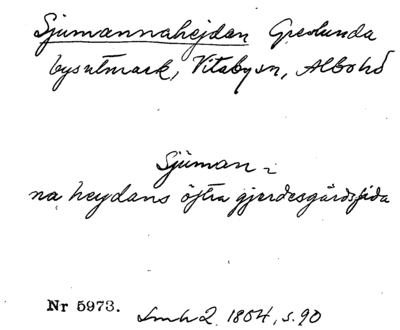 Sjumannahejdan Grevlunda
bysutmark, Vitaby sn, Albo hd
Sjüman=
na heydans östra gjerdesgårdssida
Nr 5973.
Lmh 2. 1804, s. 90